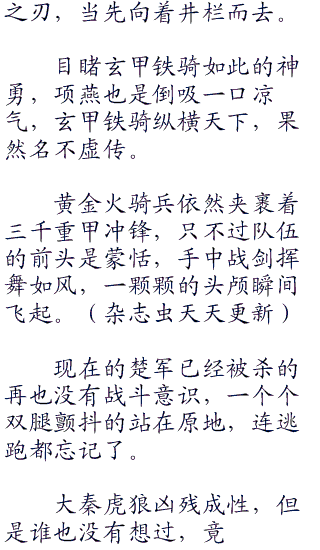 之刃，当先向着井栏而去。
目睹玄甲铁骑如此的神
勇，项燕也是倒吸一口凉
气，玄甲铁骑纵横天下，果
然名不虚传。
黄金火骑兵依然夹裹着
三千重甲冲锋，只不过队伍
的前头是蒙恬，手中战剑挥
舞如风，一颗颗的头颅瞬间
飞起。（杂志虫天天更新）
现在的楚军已经被杀的
再也没有战斗意识，一个个
双腿颤抖的站在原地，连逃
跑都忘记了。
大秦虎狼凶残成性，但
是谁也没有想过，竟